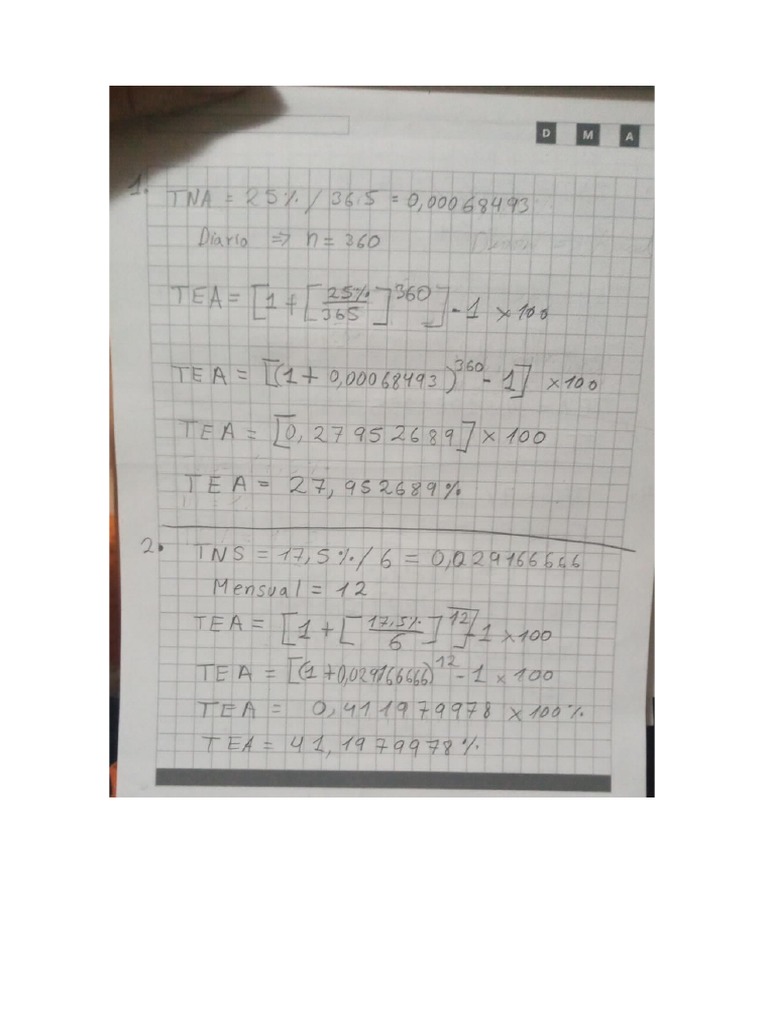 D M A
1. TNA = 25% / 365 = 0,00068493
Diario ⇒ n = 360
TEA = [1 + [25%/365]^360] - 1 x 100
TEA = [(1 + 0,00068493)^360 - 1] x 100
TEA = [0,27952689] x 100
TEA = 27,952689%
2. TNS = 17,5% / 6 = 0,029166666
Mensual = 12
TEA = [1 + [17,5%/6]^12] - 1 x 100
TEA = [(1 + 0,029166666)^12 - 1 x 100
TEA = 0,411979978 x 100%
TEA = 41,1979978%